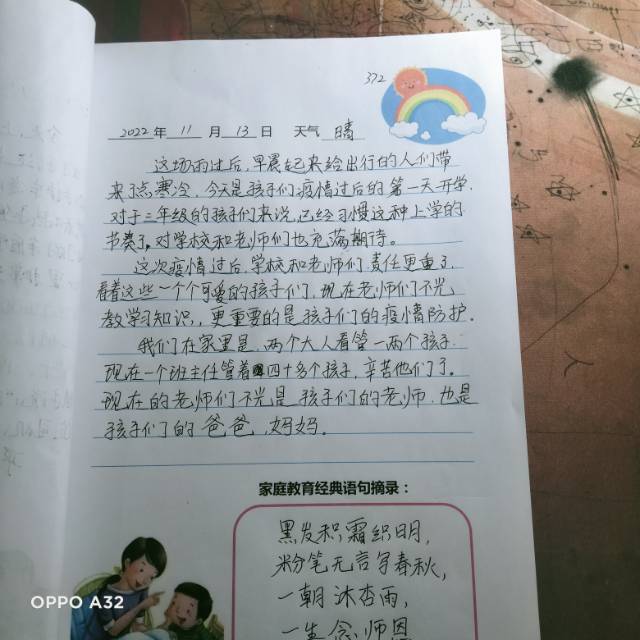 372
2022 年 11 月 13 日 天气 晴
这场雨过后,早晨起来给出行的人们带
来了点寒冷,今天是孩子们疫情过后的第一天开学,
对于三年级的孩子们来说,已经习惯这种上学的
节奏了,对学校和老师们也充满期待。
这次疫情过后,学校和老师们责任更重了,
看着这些一个个可爱的孩子们,现在老师们不光
教学习知识,更重要的是孩子们的疫情防护.
我们在家里是,两个大人看管一两个孩子.
现在一个班主任管着四十多个孩子,辛苦他们了。
现在的老师们不光是孩子们的老师,也是
孩子们的爸爸,妈妈。
家庭教育经典语句摘录:
黑发积霜织日月,
粉笔无言写春秋,
一朝沐杏雨,
一生念师恩
OPPO A32